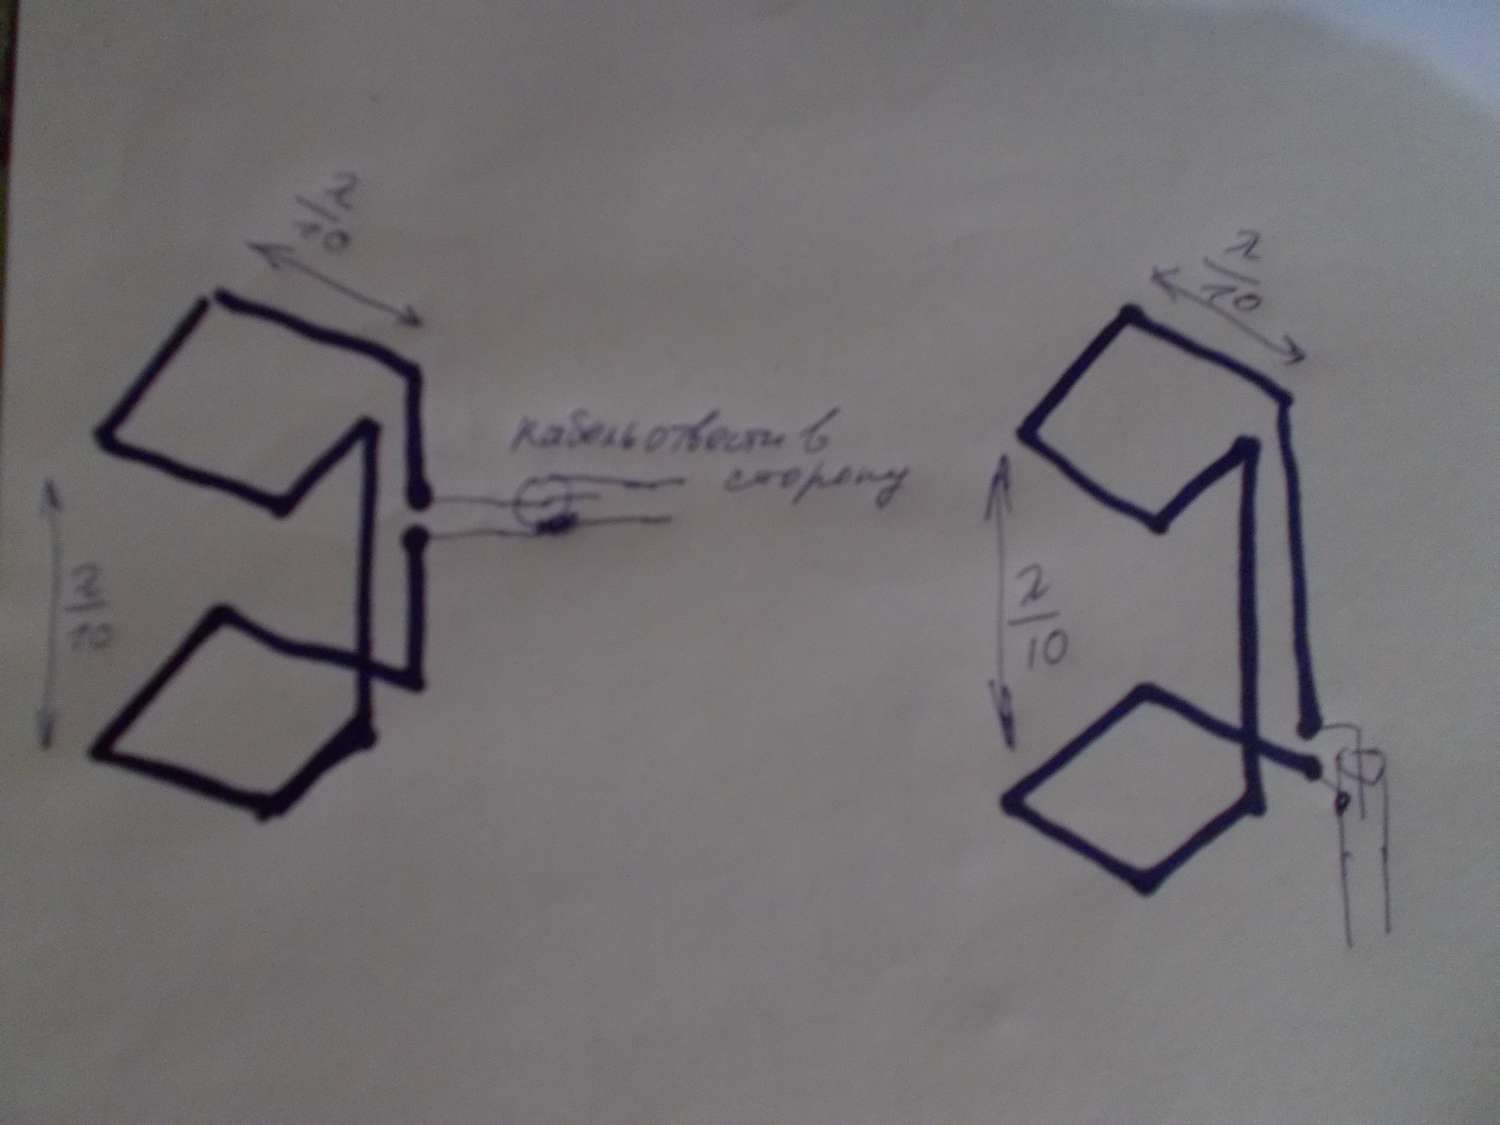 λ/10
λ/10
кабель отвести в
сторону
λ/10
λ/10